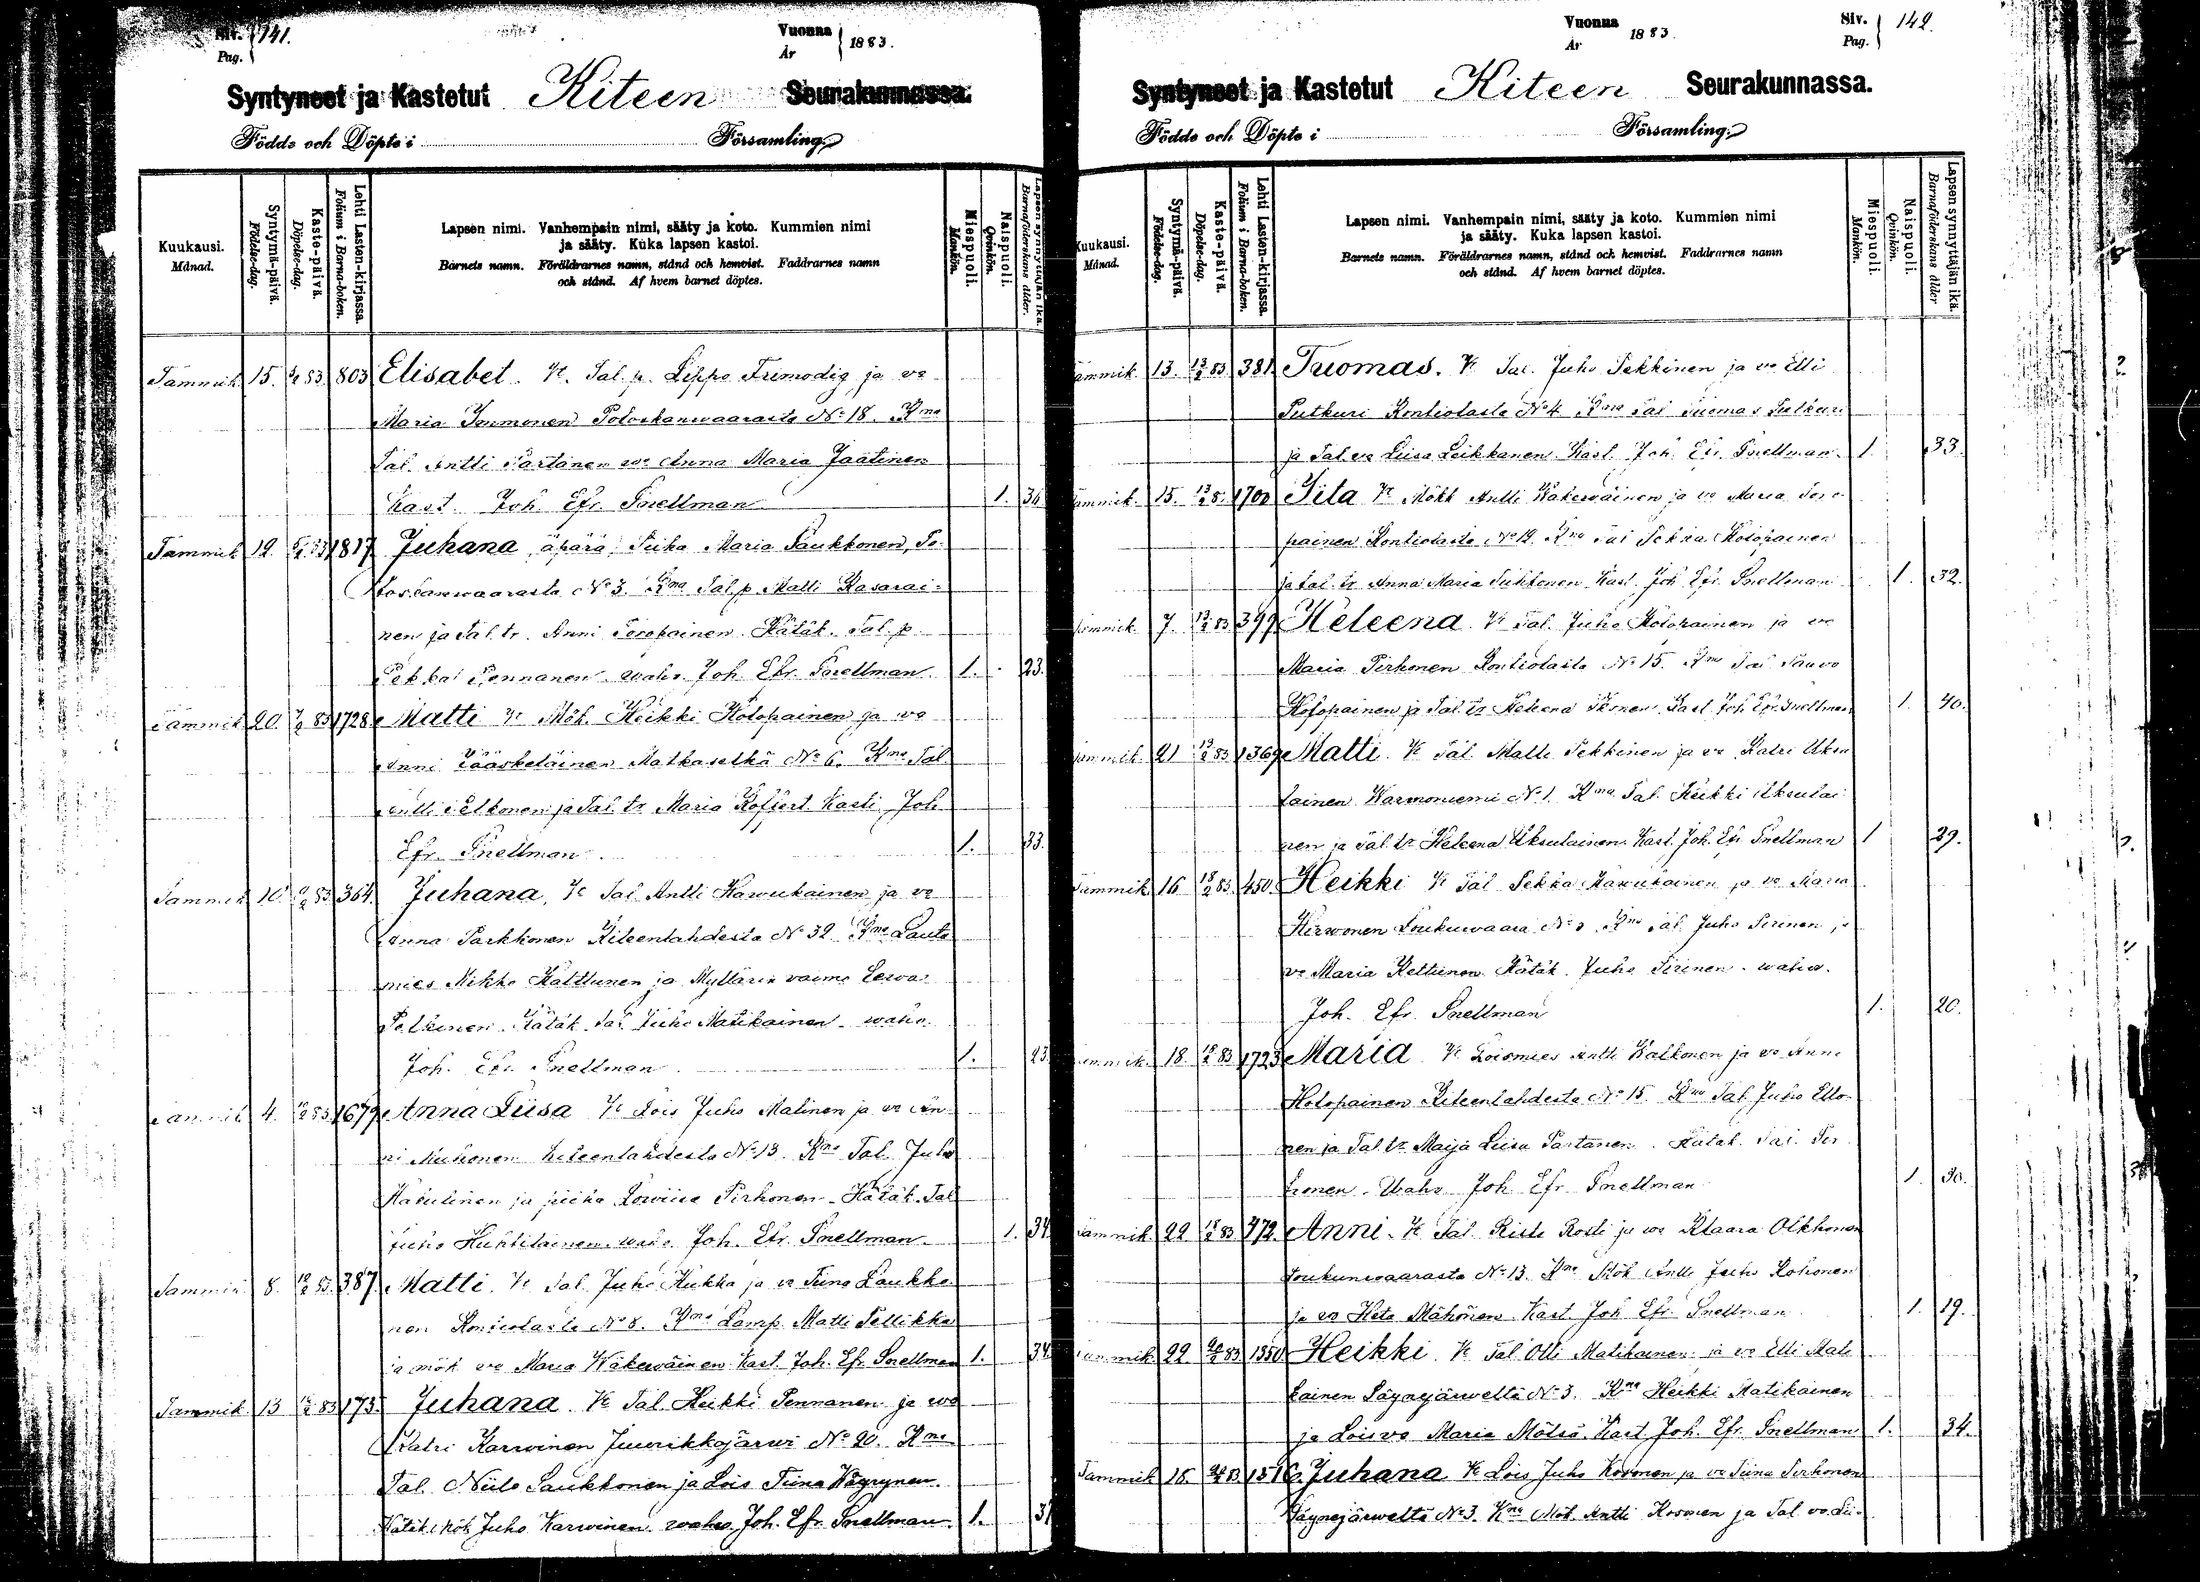 Siv. Pag. 141.
Vuonna År 1883.
Syntyneet ja Kastetut Kiteen Seurakunnassa.
Födde och Döpte i Församling.
Kuukausi. Månad.
Syntymä-päivä. Födelse-dag.
Kaste-päivä. Döpelse-dag.
Lehti Lasten-kirjassa. Folium i Barna-boken.
Lapsen nimi. Vanhempain nimi, sääty ja koto. Kummien nimi
ja sääty. Kuka lapsen kastoi.
Barnets namn. Föräldrarnes namn, stånd och hemvist. Faddrarnes namn
och stånd. Af hvem barnet döptes.
Miespuoli. Mankön.
Naispuoli. Qvinkön.
Lapsen synnyttäjän ikä. Barnaföderskans ålder.
Tammik. 15. 83 803 Elisabet. Vt. Tal. p. Lippo Frimodig ja vo
Maria Immonen Potoskanwaarasta No 18. Kmo
Tal. Antti Partanen wo Anna Maria Jaatinen
Kast. Joh. Efr. Snellman 1. 36
Tammik 19. 1817 Juhana, äpärä, Piika Maria Paukkonen, Po-
toskanwaarasta No 3. Kmo Tal. p. Matti Kasarai-
nen ja Tal. tr. Anni Teropainen. Hätäk. Tal. p.
Pekka Pennanen wahv. Joh. Efr. Snellman. 1. 23.
Tammik 20. 83 1728 Matti Vt Mök. Heikki Holopainen ja vo
Anni Jääskeläinen Matkaselkä No 6. Kmo Tal
Antti Pelkonen ja Tal. tr. Maria Koffert Kasti Joh
Efr. Snellman. 1. 33.
Tammik 10. 83 364. Juhana, Vt Tal Antti Hawukainen ja vo
Anna Parkkonen Kiteenlahdesta No 32 Kmo Lauta
mies Mikko Kalttunen ja Myllärin vaimo Eewa
Pelkinen. Hätäk. Tal. Juho Matikainen. wahv.
Joh. Efr. Snellman 1. 23.
Tammik 4. 83 1679 Anna Liisa Vt Lois Juho Malinen ja vo An-
ni Muhonen Kiteenlahdesta No 13. Kmo Tal. Juho
ja piika Lowiisa Pirhonen. Hätäk. Tal
Juho Huhtilainen. wahv. Joh. Efr. Snellman. 1. 34.
Tammik 8. 83 387 Matti. Vt Tal. Juho Kukka ja vo Tiina Laukka
nen Kontiolasta No 8. Kmo Lamp. Matti Pellikka
ja mök vo Maria Wäkewäinen Kast. Joh. Efr. Snellman 1. 34.
Tammik 13 83 173. Juhana. Vt Tal. Heikki Pennanen ja wo
Katri Karwinen Juurikkajärwi No 20. Kmo
Tal. Niilo Saukkonen ja Lois Tiina Wäyrynen.
Hätäk. Mök Juho Karwinen. wahv. Joh. Efr. Snellman. 1. 31
Siv. Pag. 142.
Vuonna År 1883.
Syntyneet ja Kastetut Kiteen Seurakunnassa.
Födde och Döpte i Församling.
Kuukausi. Månad.
Syntymä-päivä. Födelse-dag.
Kaste-päivä. Döpelse-dag.
Lehti Lasten-kirjassa. Folium i Barna-boken.
Lapsen nimi. Vanhempain nimi, sääty ja koto. Kummien nimi
ja sääty. Kuka lapsen kastoi.
Barnets namn. Föräldrarnes namn, stånd och hemvist. Faddrarnes namn
och stånd. Af hvem barnet döptes.
Miespuoli. Mankön.
Naispuoli. Qvinkön.
Lapsen synnyttäjän ikä. Barnaföderskans ålder
Tammik. 13. 13/2 83 381 Tuomas. Vt Tal. Juho Pekkinen ja vo Elli
Putkuri Kontiolasta No 4 Kmo Tal Tuomas Putkuri
ja Tal. vo Liisa Leikkanen Kast. Joh. Efr. Snellman. 1. 33.
Tammik. 15. 1700 Iita Vt Mökl Antti Wäkewäinen ja vo Maria Tero-
painen Kontiolasta No 12. Kmo Tal Pekka Holopainen
ja tal. tr. Anna Maria Tukkonen Kast. Joh. Efr. Snellman 1. 32.
Tammik. 7. 13/2 83 399 Heleena Vt Tal. Juho Holopainen ja vo
Maria Pirhonen Kontiolasta No 15. Kmo Tal Paavo
Holopainen ja Tal. tr Helena Ikonen. Kast. Joh. Efr. Snellman 1. 40.
Tammik. 21 13/2 83 1369 Matti. Vt Tal. Matti Pekkinen ja vo Katri Uksu
lainen Warmoniemi No 1. Kmo Tal. Heikki Uksulai
nen ja Tal. tr. Heleena Uksulainen. Kast. Joh. Efr. Snellman 1 29.
Tammik 16 18/2 83 450. Heikki Vt Tal Pekka Hawukainen ja vo Maria
Hirwonen Loukuwaara No 3 Kmo Tal. Juho Sirinen ja
vo Maria Kettunen Hätäk. Juho Sirinen. wahv.
Joh. Efr. Snellman 1. 20.
Tammik. 18. 18/2 83 1723 Maria Vt Loismies Antti Walkonen ja vo Anni
Holopainen Kiteenlahdesta No 15. Kmo Tal. Juho Ello-
nen ja Tal. tr Maija Liisa Partanen. Hätäk. Tal.
. Wahv Joh. Efr. Snellman 1. 30.
Tammik. 22 18/2 83 472. Anni. Vt Tal. Risto Rosti ja wo Klaara Olkkonen
Loukunwaarasta No 13. Kmo Mök Antti Juho Kohonen
ja vo Keta Mähönen. Kast. Joh. Efr. Snellman 1. 19.
Tammik 22 83 1350 Heikki. Vt Tal Olli Matikainen ja vo Elli Mati
kainen Säynejärweltä No 3. Kmo Heikki Matikainen
ja Lois vo Maria Mötsö. Kast. Joh. Efr. Snellman 1. 34.
Tammik 15 83 1516 Juhana Vt Lois Juho Kosonen ja vo Tiina Pirhonen
Säynejärweltä No 3. Kmo Mök Antti Kosonen ja Tal vo Lii-